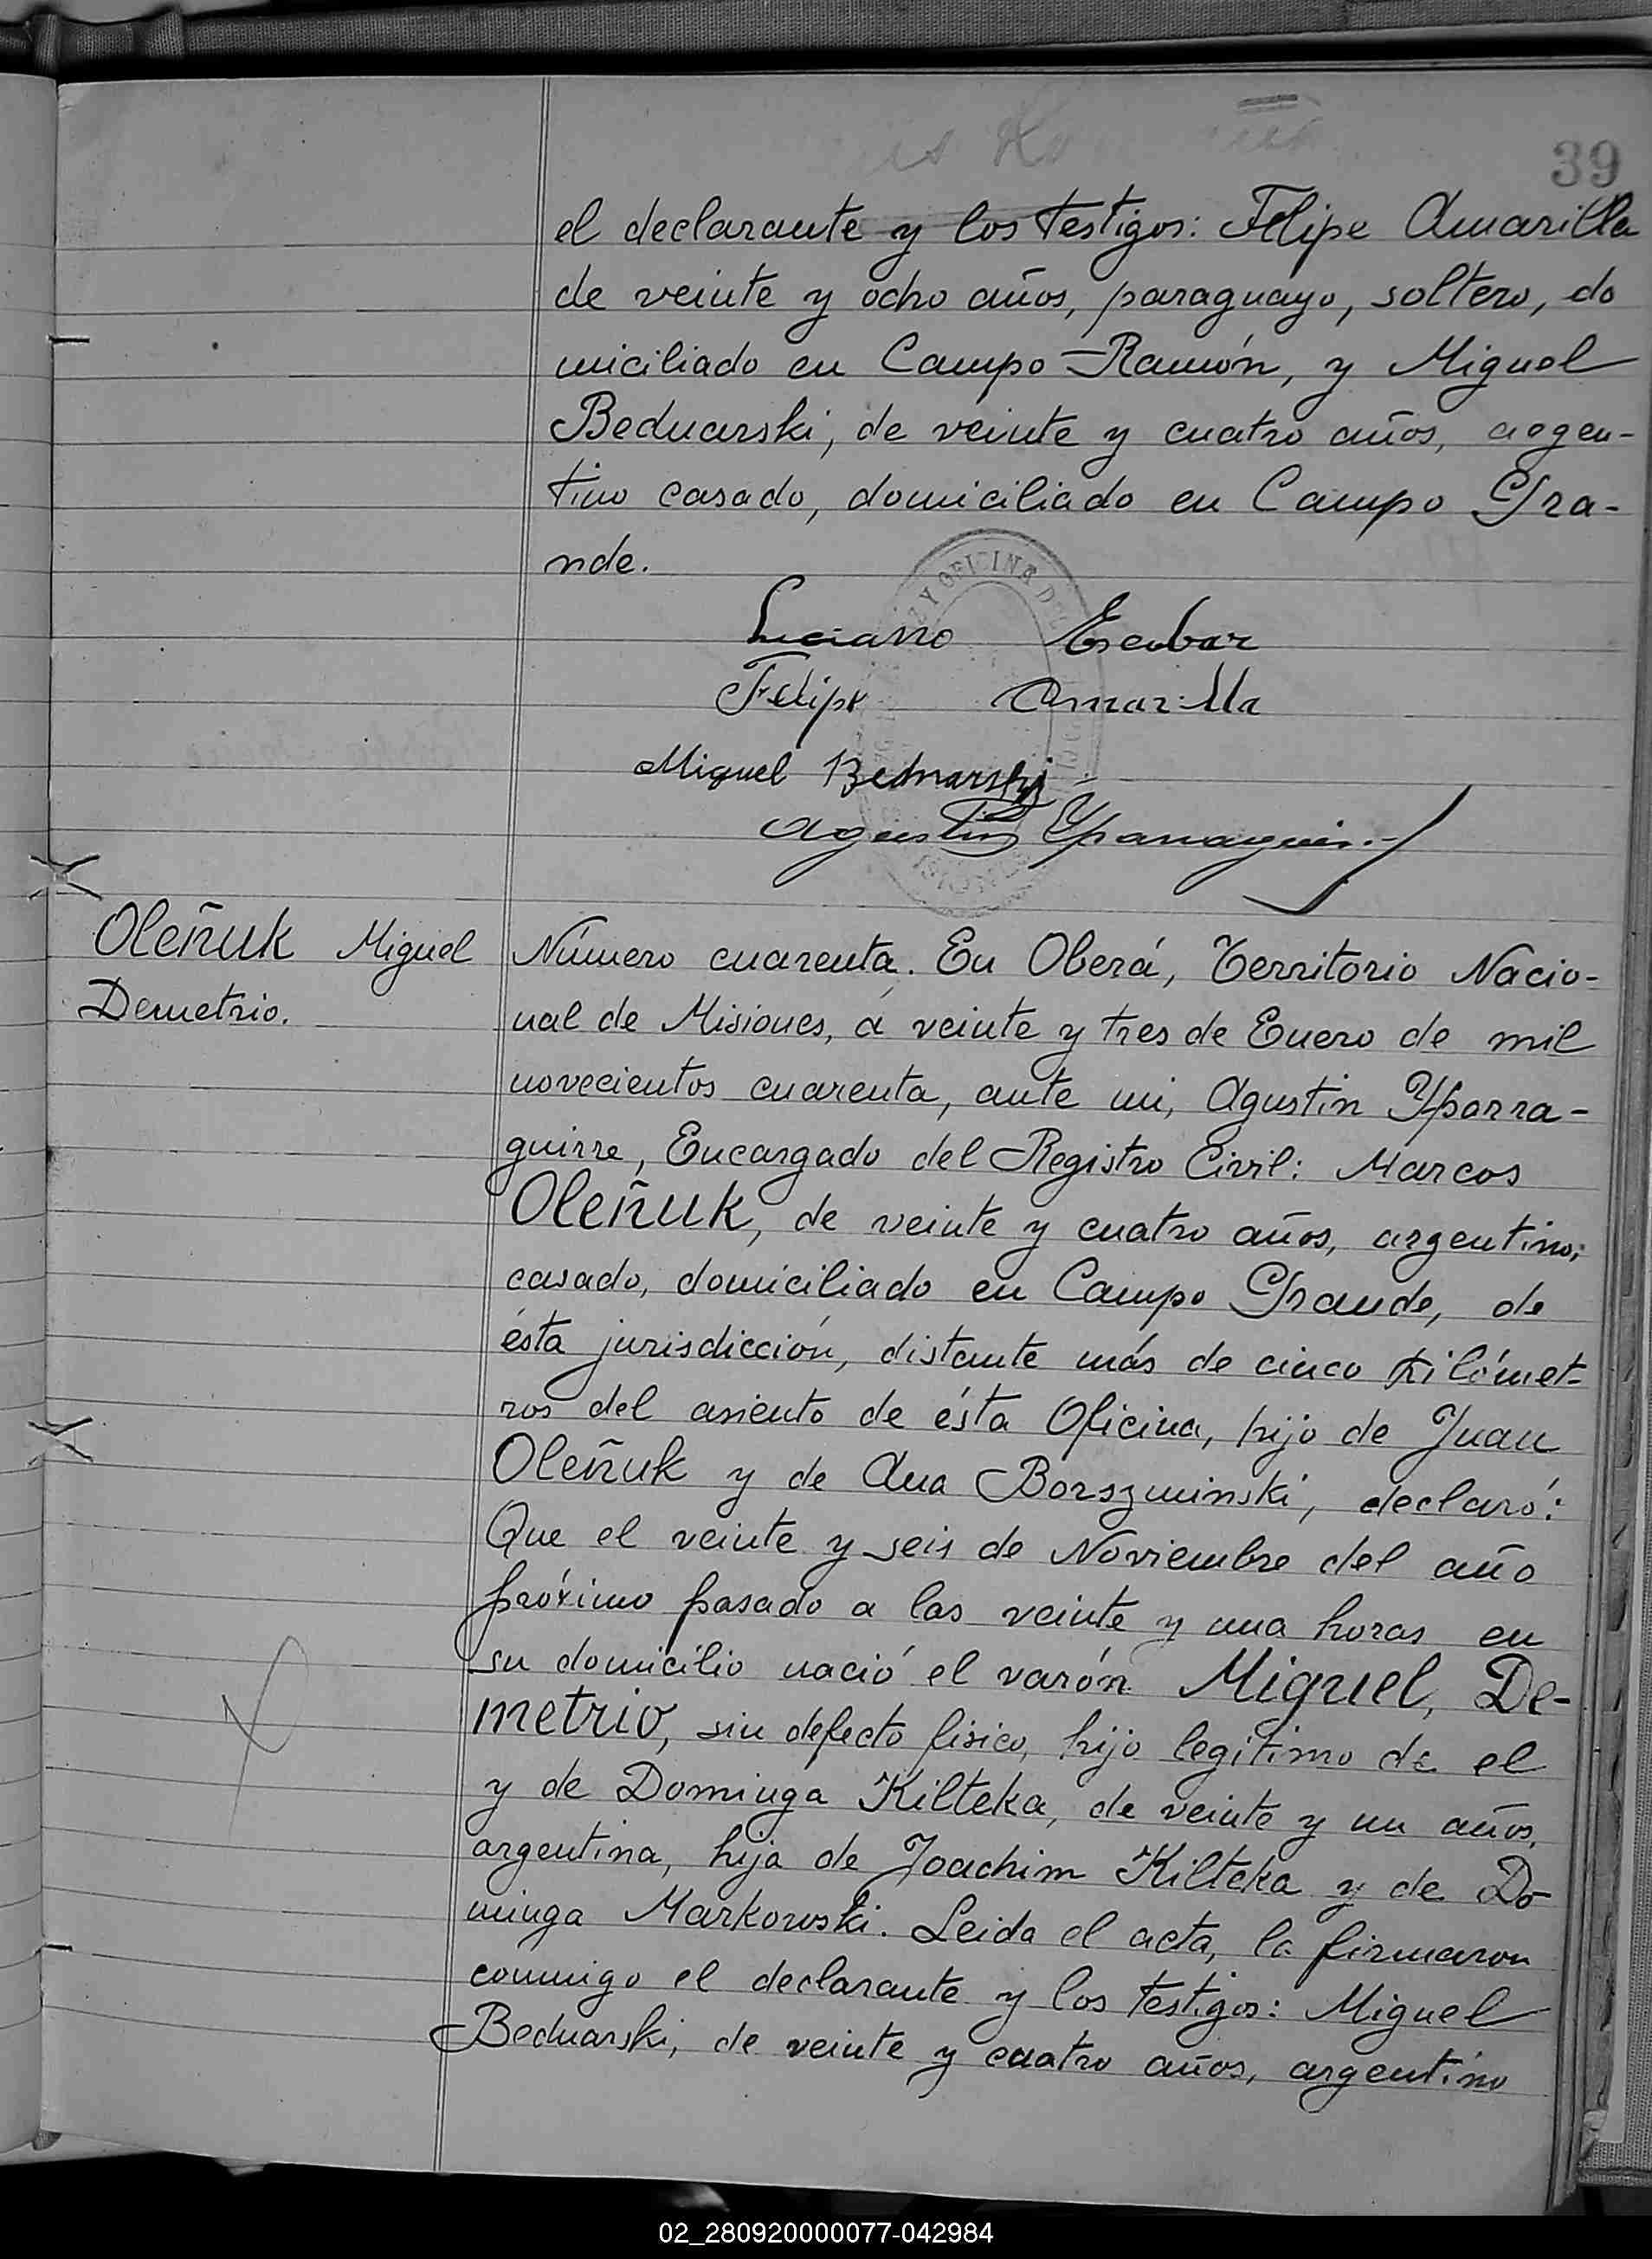 39
el declarante y los testigos: Felipe Amarilla
de veinte y ocho años, paraguayo, soltero, do
miciliado en Campo Ramón, y Miguel
Bednarski, de veinte y cuatro años, argen-
tino casado, domiciliado en Campo Gra-
nde.
Luciano Escobar
Felipe Amarilla
Miguel Bednarski
Agustin Yparraguirre
Oleñuk Miguel
Demetrio.
Número cuarenta. En Oberá, Territorio Nacio-
nal de Misiones, á veinte y tres de Enero de mil
novecientos cuarenta, ante mi, Agustin Yparra-
guirre, Encargado del Registro Civil: Marcos
Oleñuk, de veinte y cuatro años, argentino,
casado, domiciliado en Campo Grande, de
ésta jurisdicción, distante más de cinco kilómet-
ros del asiento de ésta Oficina, hijo de Juan
Oleñuk y de Ana Borszminski, declaró:
Que el veinte y seis de Noviembre del año
próximo pasado a las veinte y una horas en
su domicilio nació el varón Miguel, De-
metrio, sin defecto fisico, hijo legítimo de el
y de Dominga Kilteka, de veinte y un años,
argentina, hija de Joachim Kilteka y de Do
minga Markowski. Leida el acta, la firmaron
conmigo el declarante y los testigos: Miguel
Bednarski, de veinte y cuatro años, argentino
02_280920000077-042984